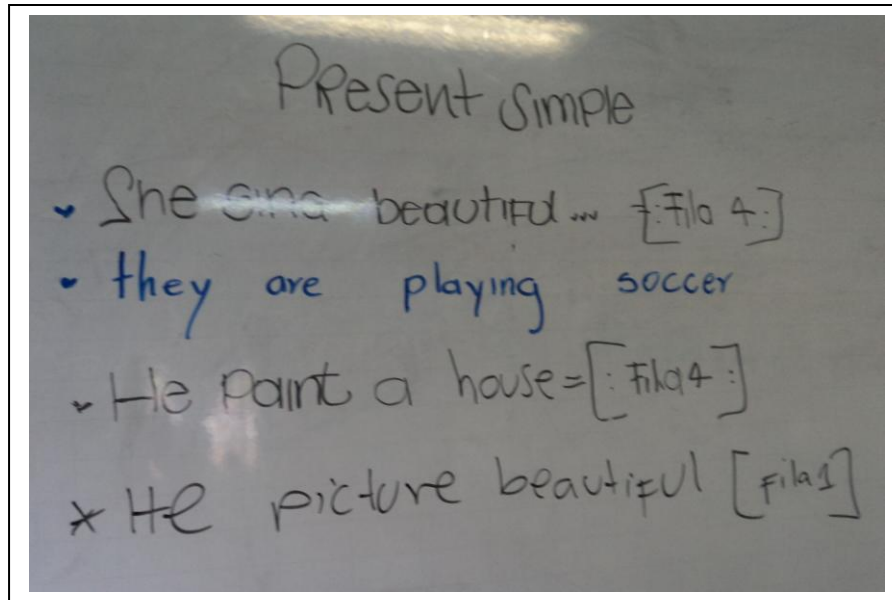 Present Simple
She sing beautiful... [:Fila 4:]
they are playing soccer
He paint a house=[:Fila4:]
* He picture beautiful [Fila1]